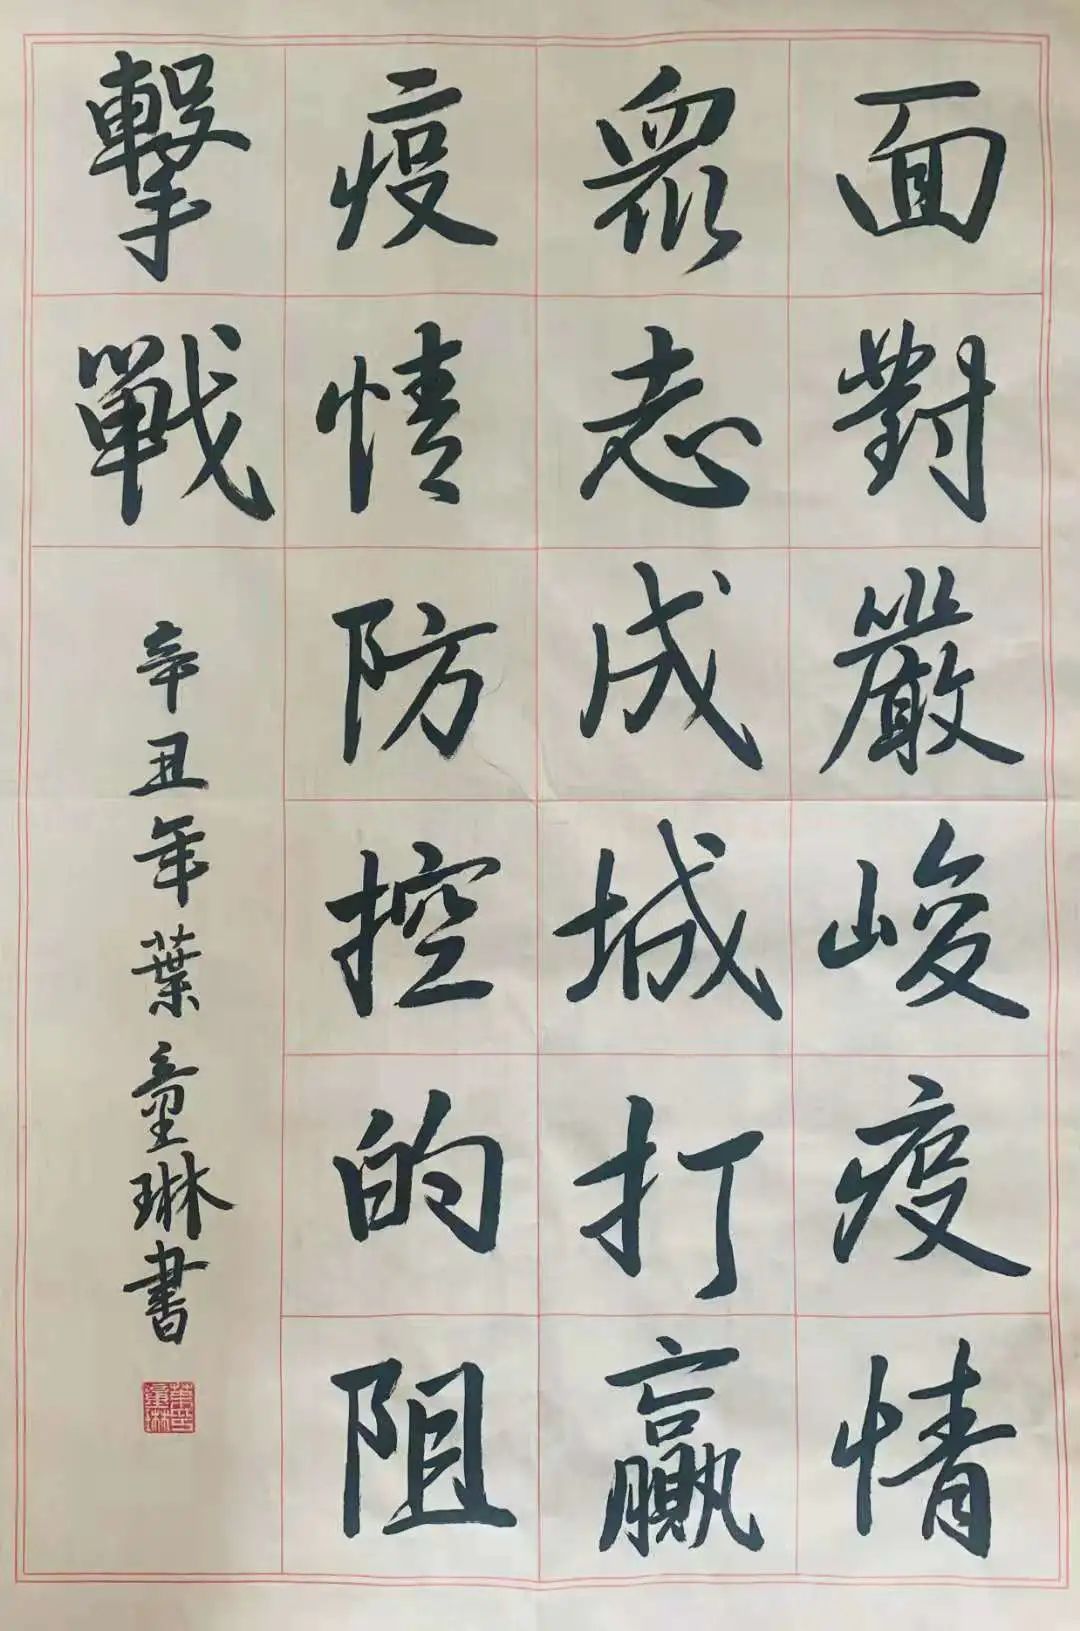 面對嚴峻疫情
眾志成城打贏
疫情防控的阻
擊戰
辛丑年葉童琳書
葉童琳印